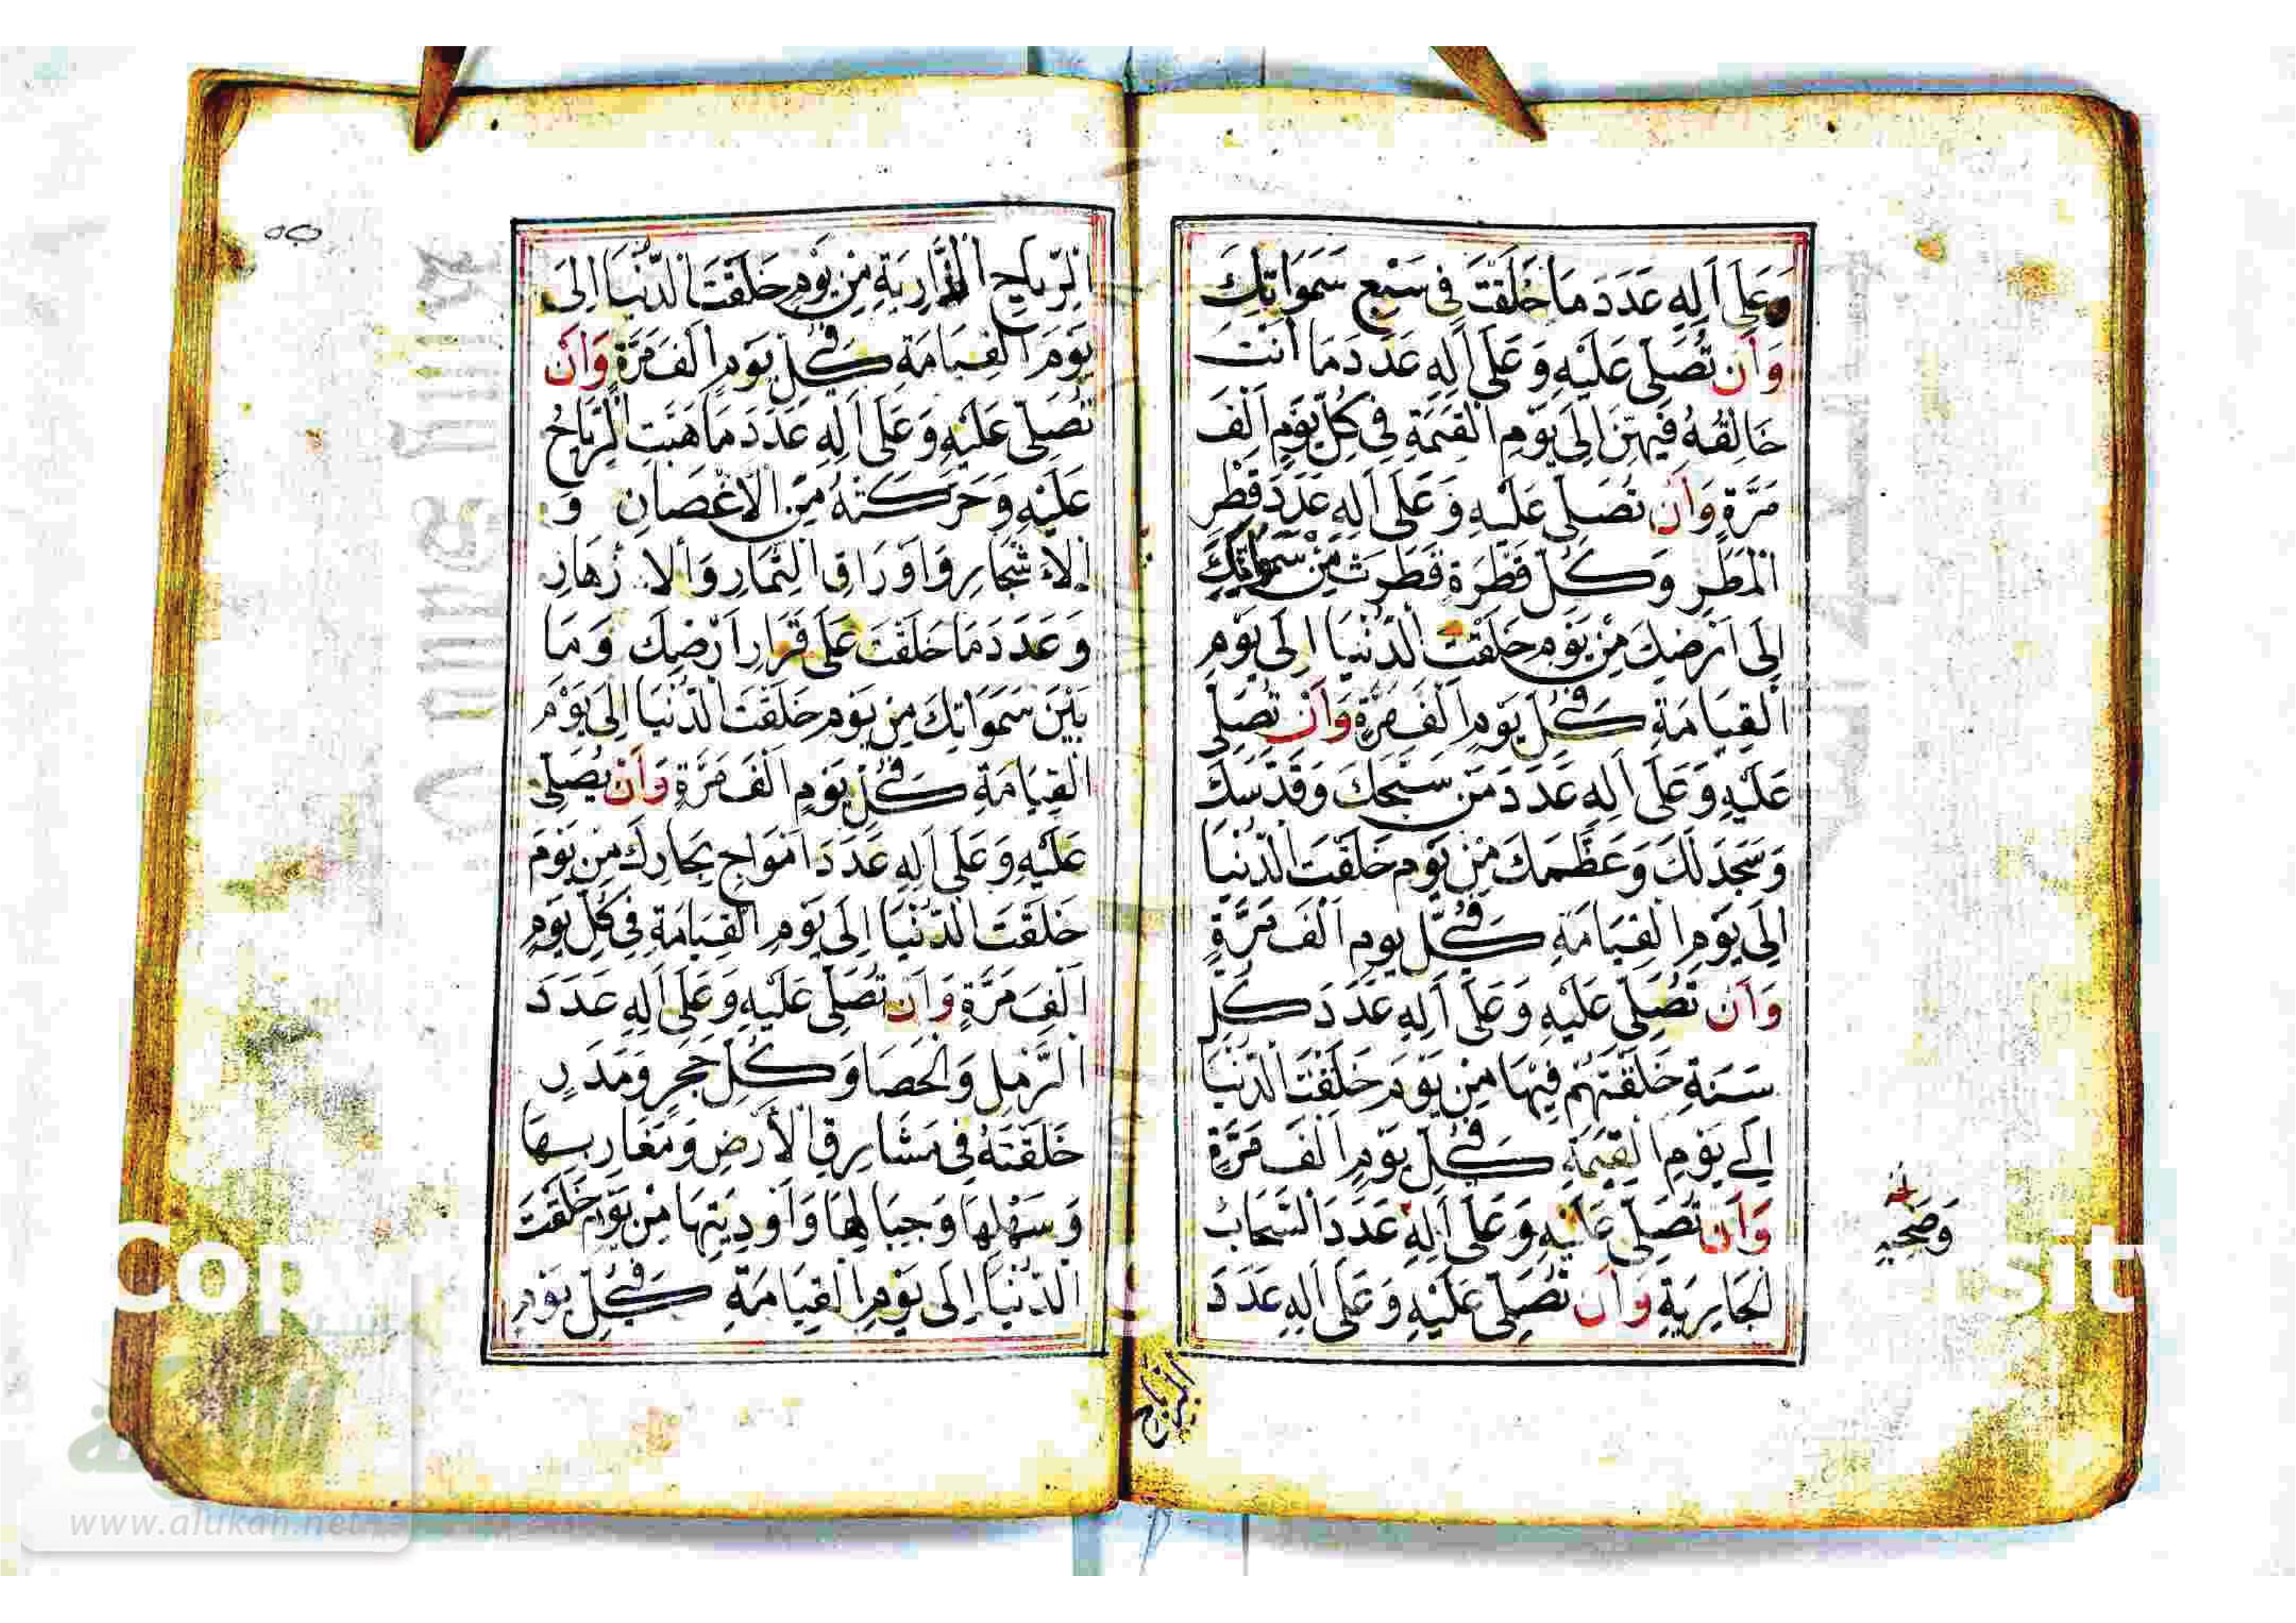 وَعَلَى اَلِهِ عَدَدَ مَا خَلَقْتَ فِى سَبْعِ سَمَوَاتِكَ
وَاَن تُصَلِّىَ عَلَيْهِ وَعَلَى اَلِهِ عَدَدَ مَا اَنْتَ
خَالِقُهُ فِيهِنَّ اِلَى يَوْمِ الْقِيَمَةِ فِى كُلِّ يَوْمٍ اَلْفَ
مَرَّةٍ وَاَن تُصَلِّىَ عَلَيْهِ وَعَلَى اَلِهِ عَدَدَ قَطْرِ
الْمَطَرِ وَكُلِّ قَطْرَةٍ قَطَرَتْ مِنْ سَمَوَاتِكَ
اِلَى اَرْضِكَ مِنْ يَوْمِ خَلَقْتَ الدُّنْيَا اِلَى يَوْمِ
الْقِيَامَةِ فِى كُلِّ يَوْمٍ اَلْفَ مَرَّةٍ وَاَنْ تُصَلِّىَ
عَلَيْهِ وَعَلَى اَلِهِ عَدَدَ مَنْ سَبَّحَكَ وَقَدَّسَكَ
وَسَجَدَ لَكَ وَعَظَّمَكَ مِنْ يَوْمِ خَلَقْتَ الدُّنْيَا
اِلَى يَوْمِ الْقِيَامَةِ فِى كُلِّ يَوْمٍ اَلْفَ مَرَّةٍ
وَاَن تُصَلِّىَ عَلَيْهِ وَعَلَى اَلِهِ عَدَدَ كُلِّ
سَنَةٍ خَلَقْتَهُمْ فِيْهَا مِنْ يَوْمِ خَلَقْتَ الدُّنْيَا
اِلَى يَوْمِ الْقِيَمَةِ فِى كُلِّ يَوْمٍ اَلْفَ مَرَّةٍ
وَاَن تُصَلِّىَ عَلَيْهِ وَعَلَى اَلِهِ عَدَدَ السَّحَابِ
الْجَارِيَةِ وَاَن تُصَلِّىَ عَلَيْهِ وَعَلَى اَلِهِ عَدَدَ
وَصَحْبِهِ
الرِّيَاحِ
الرِّيَاحِ الذَّارِيَةِ مِنْ يَوْمِ خَلَقْتَ الدُّنْيَا اِلَى
يَوْمِ الْقِيَامَةِ فِى كُلِّ يَوْمٍ اَلْفَ مَرَّةٍ وَاَنْ
تُصَلِّىَ عَلَيْهِ وَعَلَى اَلِهِ عَدَدَ مَا هَبَّتِ الرِّيَاحُ
عَلَيْهِ وَحَرَّكَتْهُ مِنَ الْاَغْصَانِ وَ
الْاَشْجَارِ وَاَوْرَاقِ الثِّمَارِ وَالْاَزْهَارِ
وَعَدَدَ مَا خَلَقْتَ عَلَى قَرَارِ اَرْضِكَ وَمَا
بَيْنَ سَمَوَاتِكَ مِنْ يَوْمِ خَلَقْتَ الدُّنْيَا اِلَى يَوْمِ
الْقِيَامَةِ فِى كُلِّ يَوْمٍ اَلْفَ مَرَّةٍ وَاَنْ تُصَلِّىَ
عَلَيْهِ وَعَلَى اَلِهِ عَدَدَ اَمْوَاجِ بِحَارِكَ مِنْ يَوْمِ
خَلَقْتَ الدُّنْيَا اِلَى يَوْمِ الْقِيَامَةِ فِى كُلِّ يَوْمٍ
اَلْفَ مَرَّةٍ وَاَن تُصَلِّىَ عَلَيْهِ وَعَلَى اَلِهِ عَدَدَ
الرَّمْلِ وَالْحَصَا وَكُلِّ حَجَرٍ وَمَدَرٍ
خَلَقْتَهُ فِى مَشَارِقِ الْاَرْضِ وَمَغَارِبِهَا
وَسَهْلِهَا وَجِبَالِهَا وَاَوْدِيَتِهَا مِنْ يَوْمِ خَلَقْتَ
الدُّنْيَا اِلَى يَوْمِ الْقِيَامَةِ فِى كُلِّ يَوْمٍ
www.alukah.net